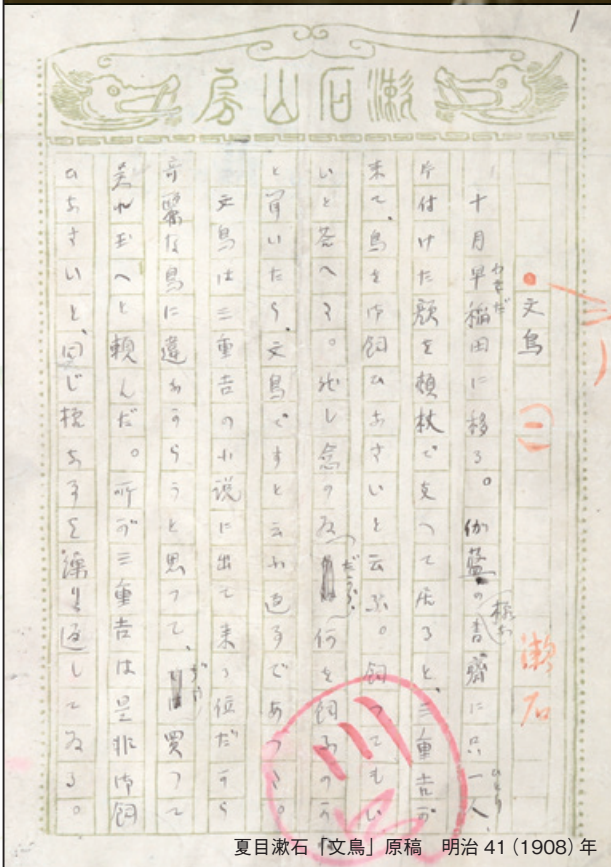 1
漱石山房
文鳥 漱石
十月早稲田に移る。伽藍の様な書斎に只一人、
わせだ
ひとり
片付けた顔を頬杖で支へて居ると、三重吉が
来て、鳥を御飼ひなさいと云ふ。飼つてもい
いと答へた。然し念の為だから、何を飼ふのかね
と聞いたら、文鳥ですと云ふ返事であつた。
文鳥は三重吉の小説に出て来る位だから
奇麗な鳥に違なからうと思つて、ぢや買つて
呉れ玉へと頼んだ。所が三重吉は是非御飼
ひなさいと、同じ様な事を繰り返してゐる。
夏目漱石「文鳥」原稿 明治41(1908)年